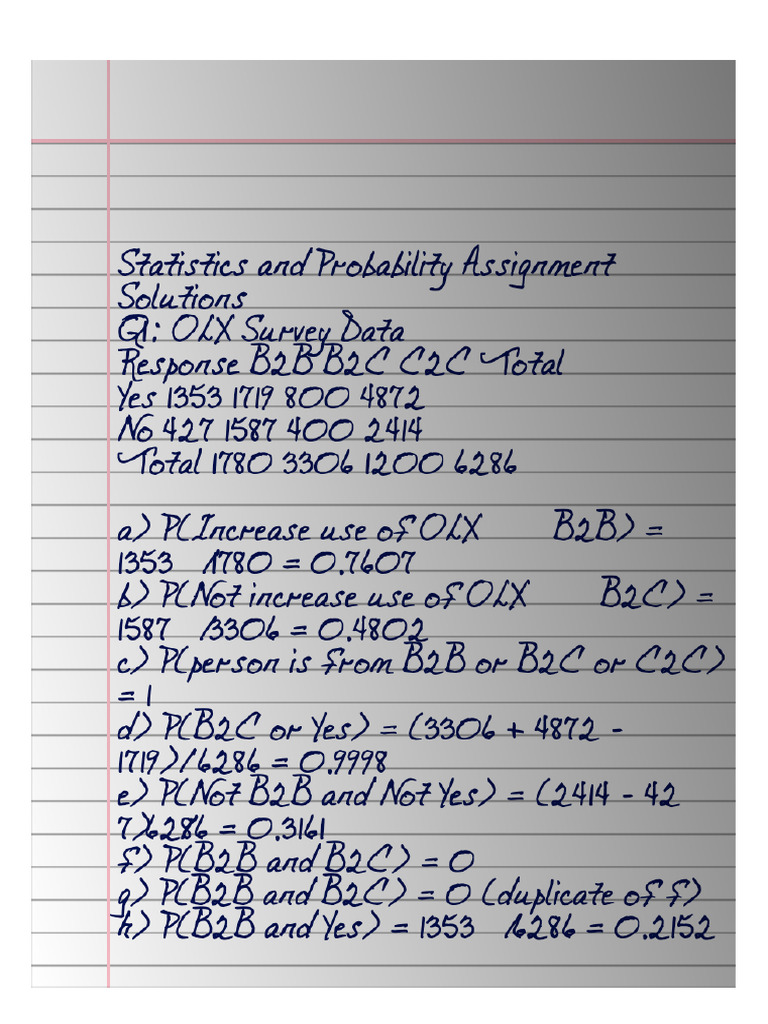 Statistics and Probability Assignment
Solutions
Q1: OLX Survey Data
Response B2B B2C C2C Total
Yes 1353 1719 800 4872
No 427 1587 400 2414
Total 1780 3306 1200 6286
a) P(Increase use of OLX B2B) =
1353 /1780 = 0.7607
b) P(Not increase use of OLX B2C) =
1587 /3306 = 0.4802
c) P(person is from B2B or B2C or C2C)
= 1
d) P(B2C or Yes) = (3306 + 4872 -
1719)/6286 = 0.9998
e) P(Not B2B and Not Yes) = (2414 - 42
7)/6286 = 0.3161
f) P(B2B and B2C) = 0
g) P(B2B and B2C) = 0 (duplicate of f)
h) P(B2B and Yes) = 1353 /6286 = 0.2152